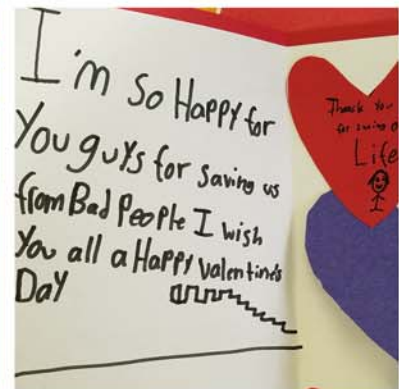 I'm so Happy for
You guys for saving us
from Bad People I wish
You all a Happy valentines
Day
Thank You
for saving o
Life